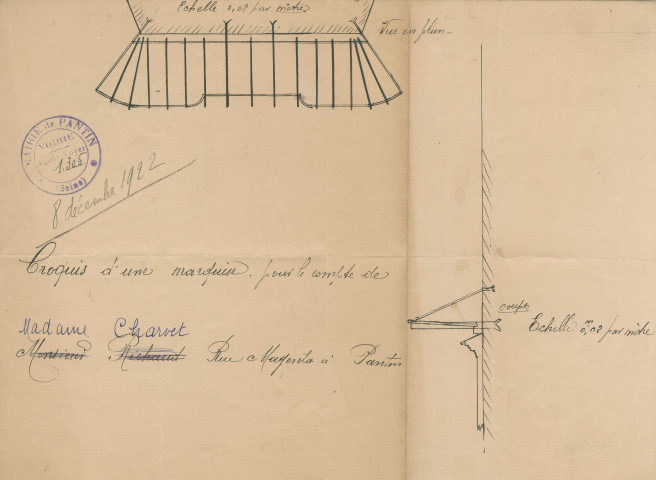 Echelle 0,08 par mètre
Vue en plan
MAIRIE de PANTIN
VOIRIE
1.305
(Seine)
8 décembre 1922
Croquis d'une marquise pour le compte de
Madame Charvet
Monsieur Richaud Rue Magenta à Pantin
coupe
Echelle 0,m08 par mètre